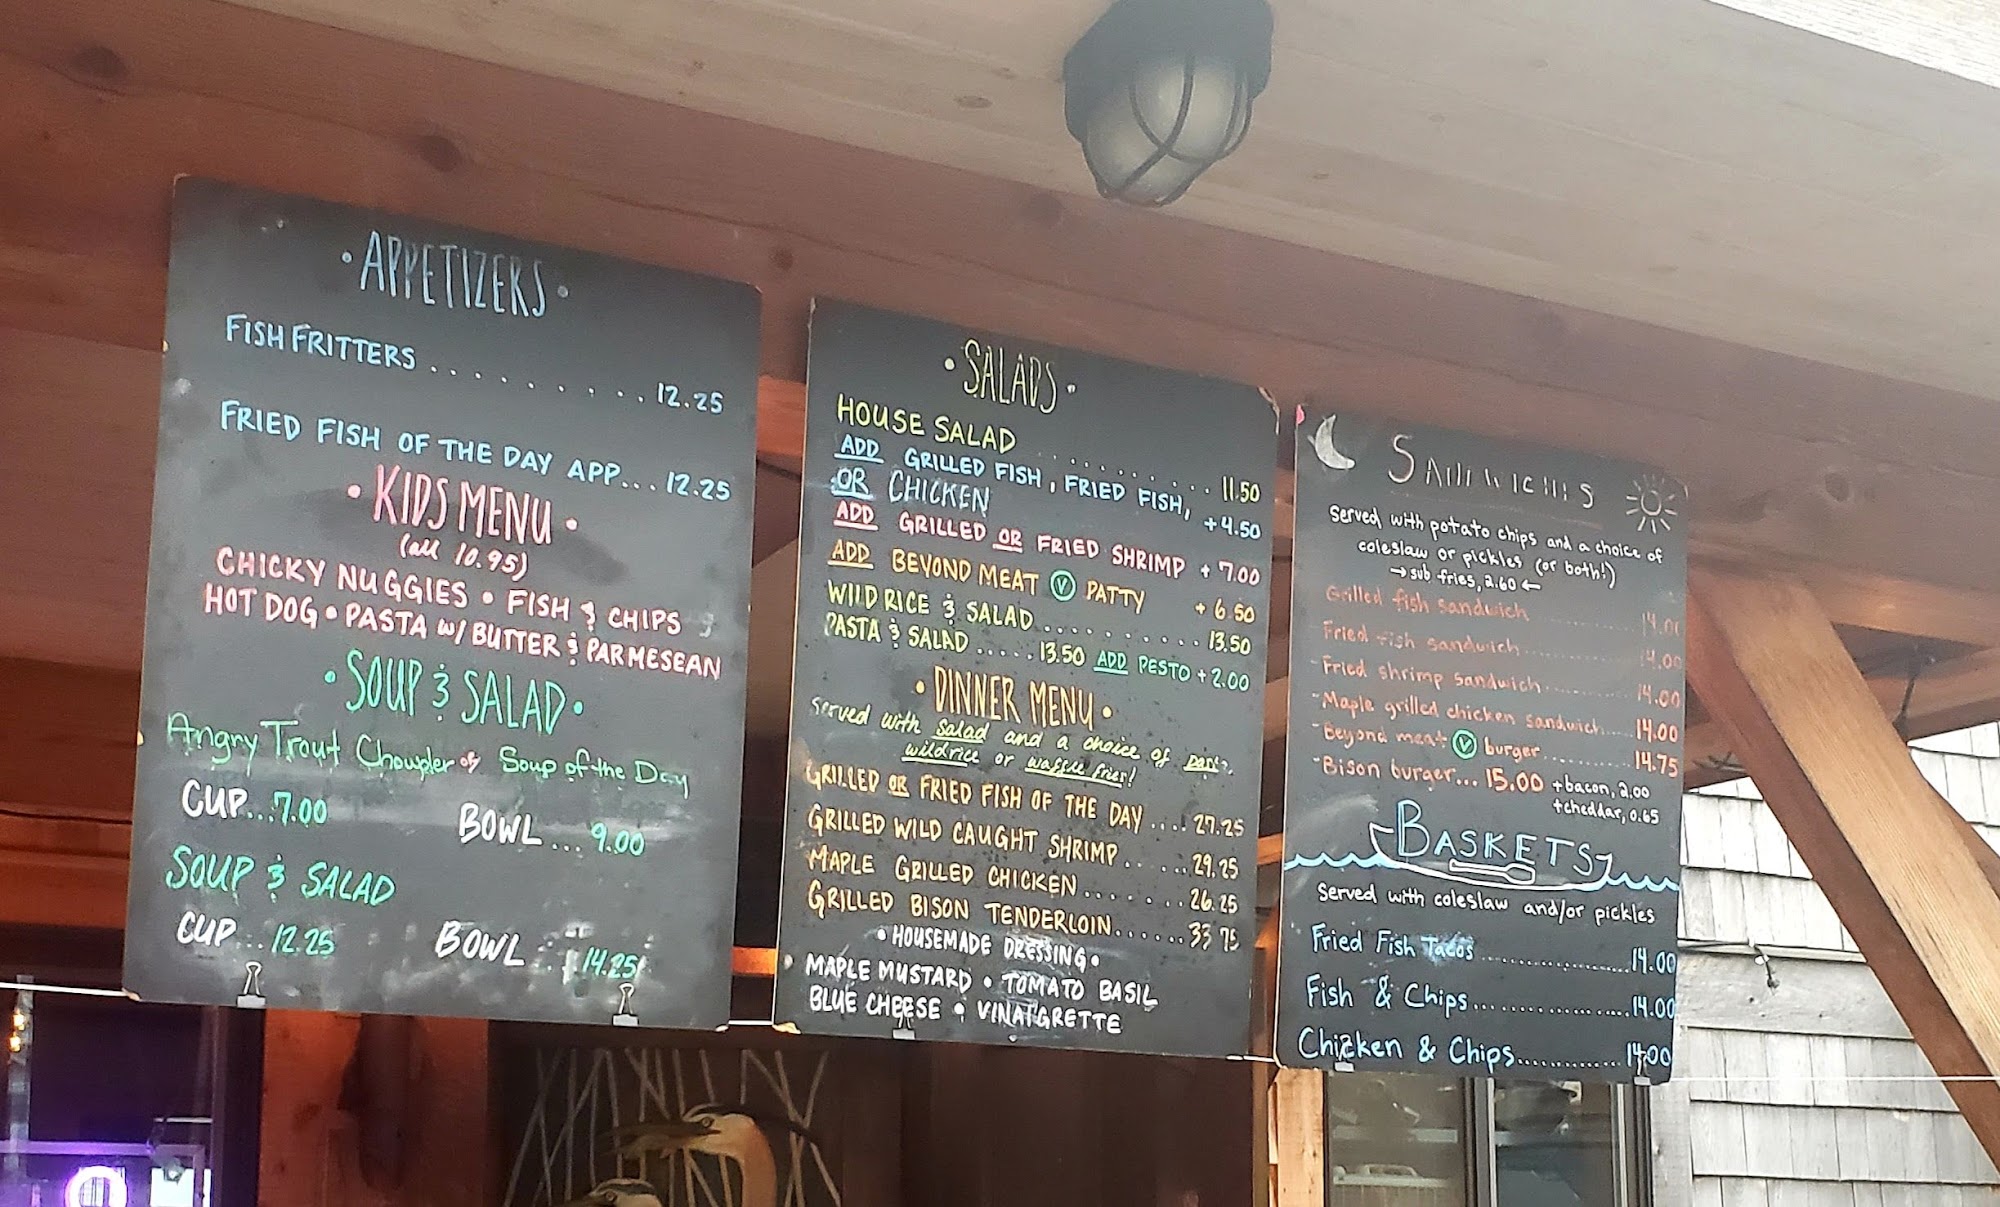 • APPETIZERS •
FISH FRITTERS . . . . . . . . . 12.25
FRIED FISH OF THE DAY APP... 12.25
• KIDS MENU •
(all 10.95)
CHICKY NUGGIES • FISH & CHIPS
HOT DOG • PASTA w/ BUTTER & PARMESEAN
• SOUP & SALAD •
Angry Trout Chowder or Soup of the Day
CUP...7.00 BOWL... 9.00
SOUP & SALAD
CUP... 12.25 BOWL... 14.25
• SALADS •
HOUSE SALAD . . . . . . . . . . 11.50
ADD GRILLED FISH, FRIED FISH,
OR CHICKEN +4.50
ADD GRILLED OR FRIED SHRIMP + 7.00
ADD BEYOND MEAT V PATTY + 6.50
WILD RICE & SALAD . . . . . . . . . . 13.50
PASTA & SALAD ..... 13.50 ADD PESTO + 2.00
• DINNER MENU •
served with salad and a choice of
wildrice or waffle fries!
GRILLED OR FRIED FISH OF THE DAY .... 27.25
GRILLED WILD CAUGHT SHRIMP ..... 29.25
MAPLE GRILLED CHICKEN ....... 26.25
GRILLED BISON TENDERLOIN ...... 33 75
• HOUSEMADE DRESSING •
MAPLE MUSTARD • TOMATO BASIL
BLUE CHEESE • VINAIGRETTE
SANDWICHES
Served with potato chips and a choice of
coleslaw or pickles (or both!)
→ sub fries, 2.60 ←
Grilled fish sandwich ........... 14.00
Fried fish sandwich ............. 14.00
~Fried shrimp sandwich ........... 14.00
~Maple grilled chicken sandwich.... 14.00
~Beyond meat V burger ........... 14.75
~Bison burger... 15.00 +bacon, 2.00
+cheddar, 0.65
BASKETS
Served with coleslaw and/or pickles
Fried Fish Tacos ..................... 14.00
Fish & Chips ..................... 14.00
Chicken & Chips ............... 14.00